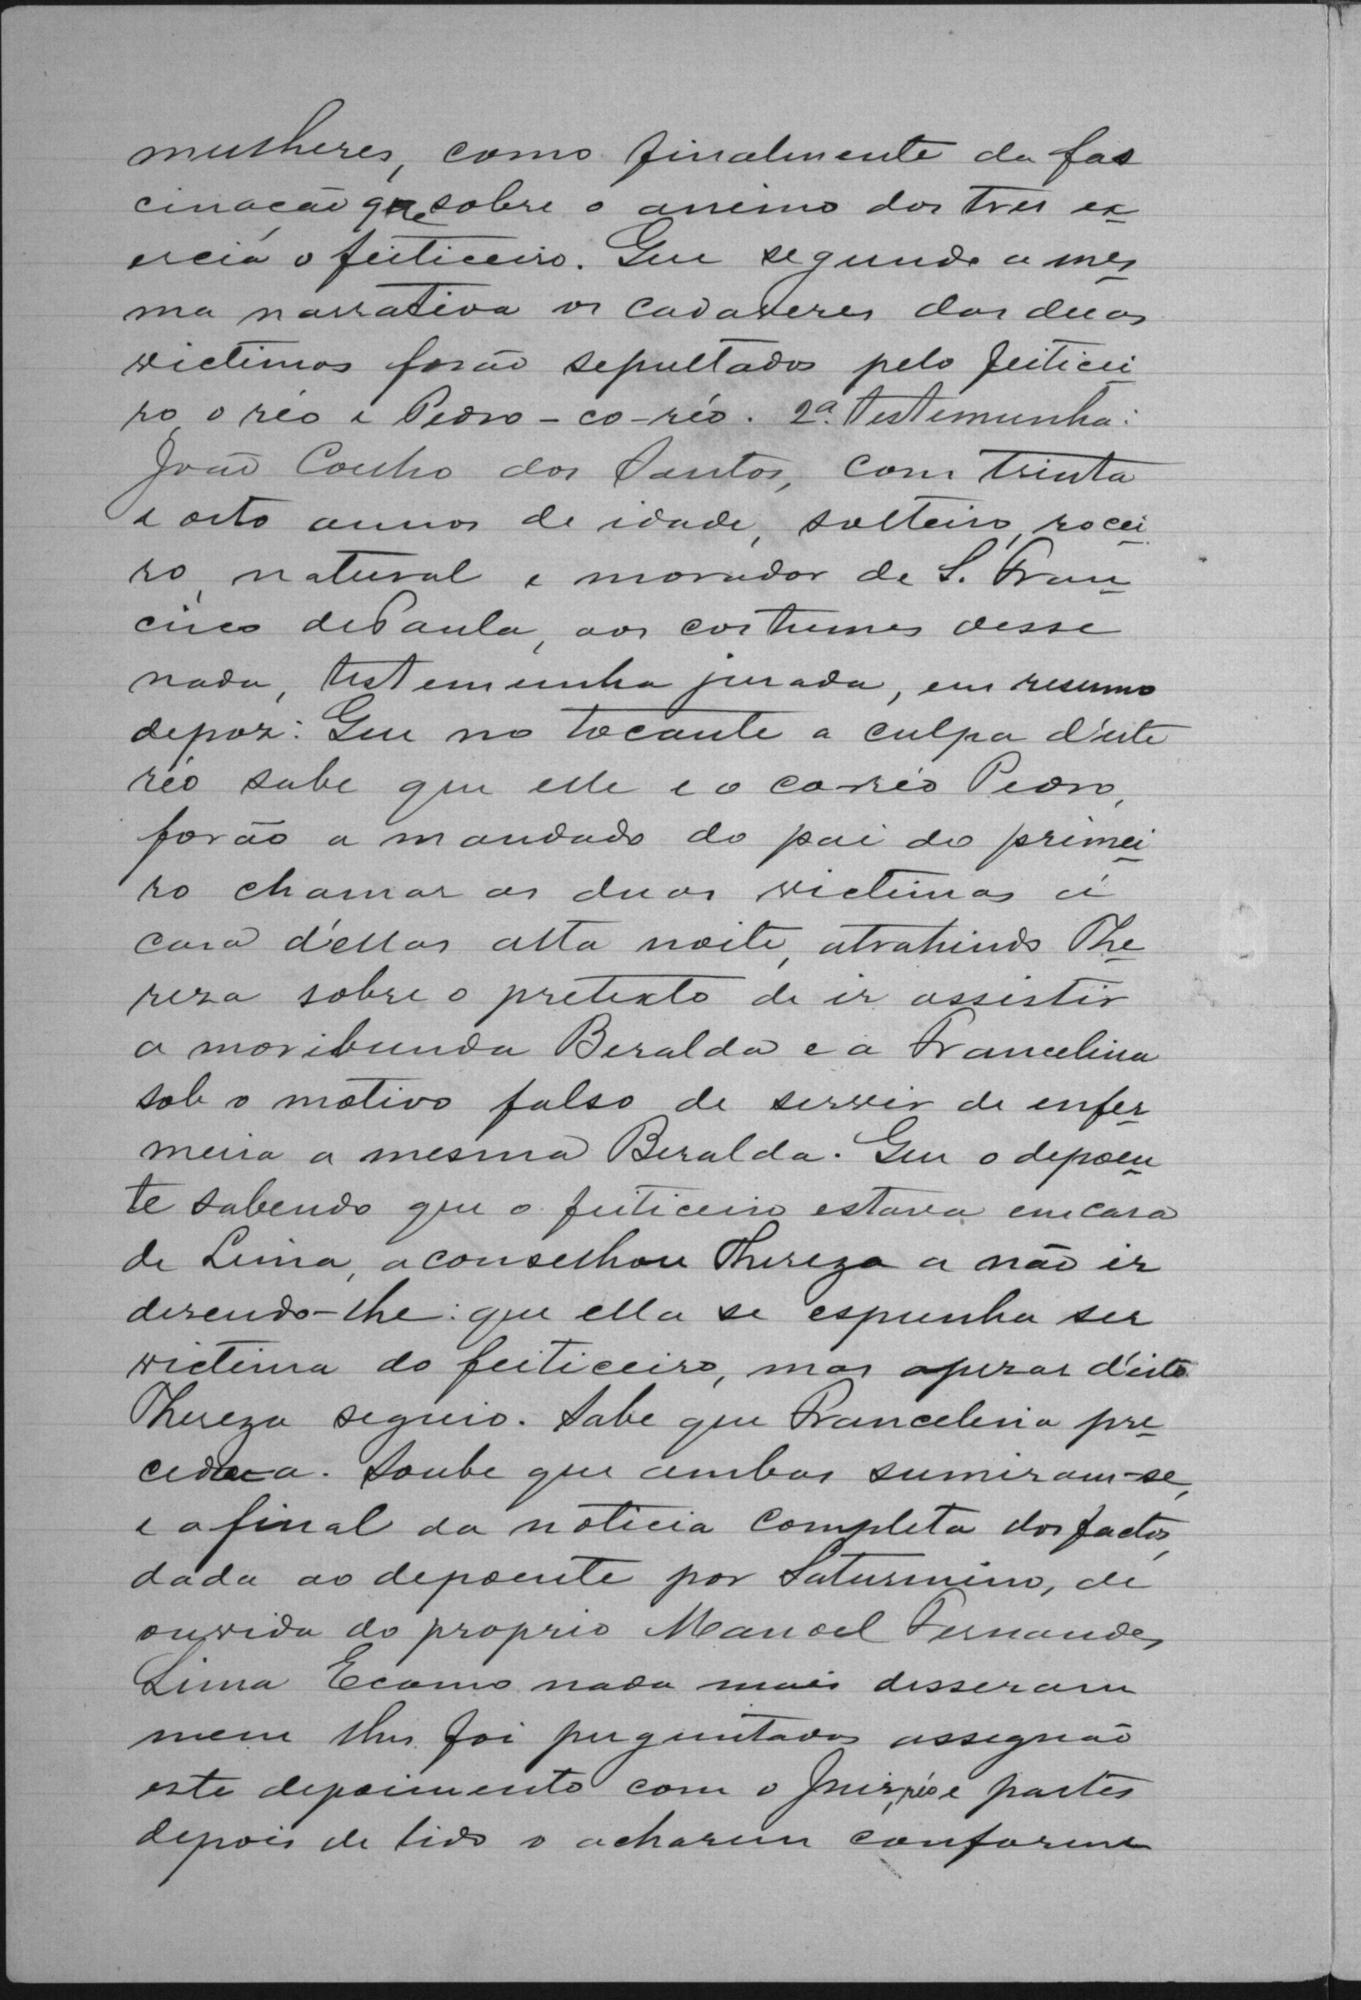 mulheres, como finalmente da fas
cinação que sobre o animo dos tres ex
ercia o feiticeiro. Que segundo a mes
ma narrativa os cadaveres das duas
victimas forão sepultados pelo feiticei
ro, o réo e Pedro - co-réo. 2ª. testemunha:
João Coelho dos Santos, com trinta
e oito annos de idade, solteiro, rocei
ro, natural e morador de S. Fran
cisco de Paula, aos costumes desse
nada, testemunha jurada, em resumo
depoz: Que no tocante a culpa d'este
réo sabe que elle e o co-réo Pedro,
forão a mandado do pai do primei
ro chamar as duas victimas á
casa d'ellas alta noite, atrahindo The
reza sobre o pretexto de ir assistir
a moribunda Beralda e a Francelina
sob o motivo falso de servir de enfer
meira a mesma Beralda. Que o depoen
te sabendo que o feiticeiro estava em casa
de Lima, aconselhou Thereza a não ir
dizendo-lhe: que ella se espunha ser
victima do feiticeiro, mas apezar d'isto
Thereza seguio. Sabe que Francelina pre
cedera. Soube que ambas sumiram-se,
e a final da noticia completa dos factos,
dada ao depoente por Saturnino, de
ouvida do proprio Manoel Fernandes
Lima E como nada mais disseram
nem lhes foi perguntados assegnão
este depoimento com o Juis, réo e partes
depois de lido o acharem conforme